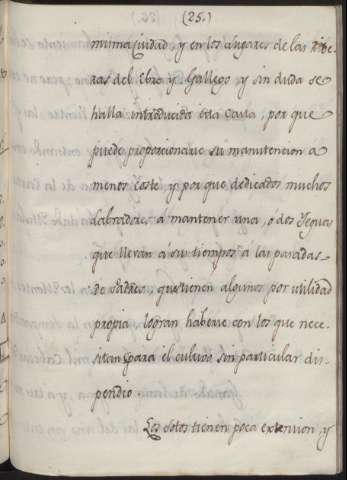 (25.)
misma Ciudad, y en los Lugares de las Ribe-
ras del Ebro y Gallego, y sin duda se
halla introducida esta Casta, por que
puede proporcionarse su manutencion a
menos coste, y por que dedicados muchos
Labradores a mantener una, o dos Yeguas
que llevan a su tiempos a las paradas
de Padres, que tienen algunos por utilidad
propia logran haberse con los que nece-
sitan para el cultivo sin particular dis-
pendio.
Los sotos tienen poca extension, y